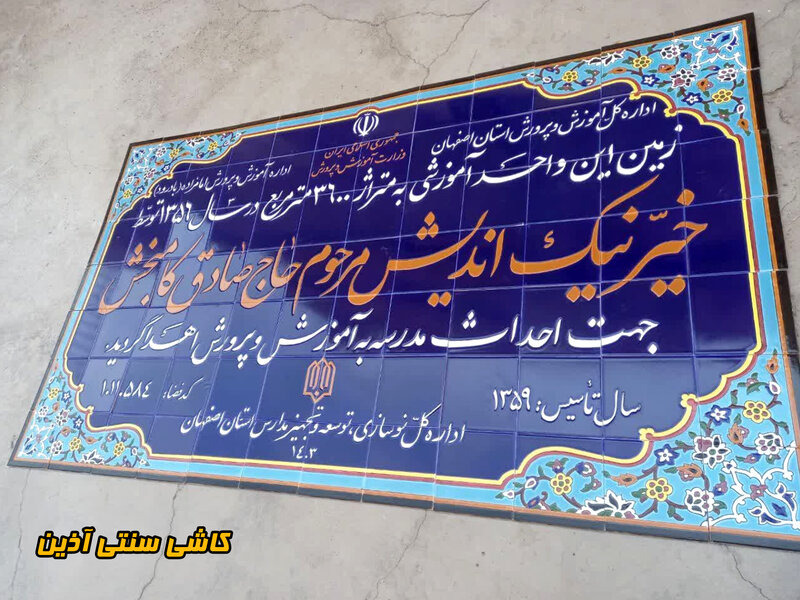 جمهوری اسلامی ایران
وزارت آموزش و پرورش
اداره کل آموزش و پرورش استان اصفهان
اداره آموزش و پرورش امامزاده (بادرود)
زمین این واحد آموزشی به متراژ ۳۶۰۰ متر مربع در سال ۱۳۵۶ توسط
خیّر نیک اندیش مرحوم حاج صادق کامبخش
جهت احداث مدرسه به آموزش و پرورش اهدا گردید.
سال تأسیس: ۱۳۵۹
کد فضا: ۱۰۱۱۰۵۸۴
اداره کل نوسازی، توسعه و تجهیز مدارس استان اصفهان
۱۴۰۳
کاشی سنتی آذین